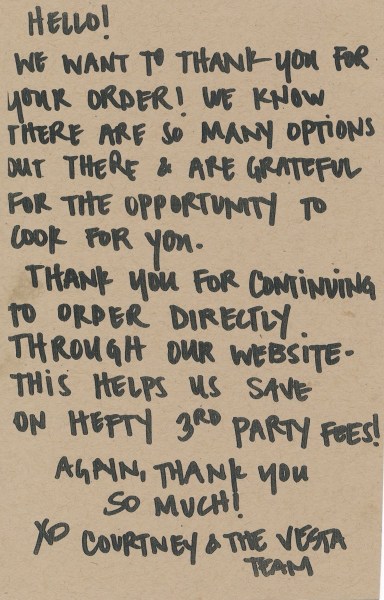 HELLO!
WE WANT TO THANK YOU FOR
YOUR ORDER! WE KNOW
THERE ARE SO MANY OPTIONS
OUT THERE & ARE GRATEFUL
FOR THE OPPORTUNITY TO
COOK FOR YOU.
THANK YOU FOR CONTINUING
TO ORDER DIRECTLY
THROUGH OUR WEBSITE-
THIS HELPS US SAVE
ON HEFTY 3RD PARTY FEES!
AGAIN, THANK YOU
SO MUCH!
XO COURTNEY & THE VESTA
TEAM